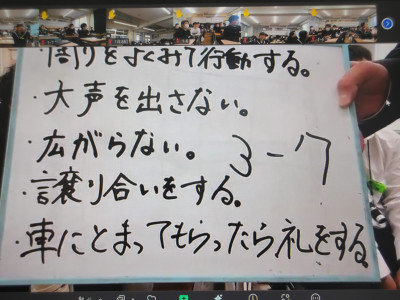 周りをよくみて行動する。
・大声を出さない。
・広がらない。
3-7
・譲り合いをする。
・車にとまってもらったら礼をする。